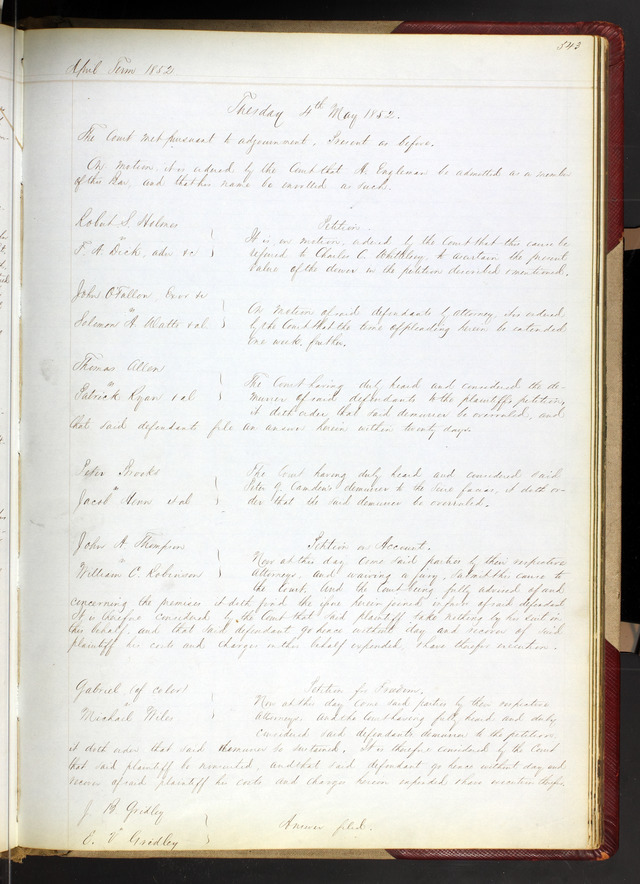 543
April Term 1852
Tuesday 4th May 1852.
The Court met pursuant to adjournment. Present as before.
On motion it is ordered by the Court that H. Engleman be admitted as a member
of this Bar, and that his name be enrolled as such.
Robert S. Holmes
Petition
vs
It is, on motion, ordered by the Court that this cause be
F. A. Dick, adm &c
referred to Charles C. Whittlesey, to ascertain the present
value of the dower in the petition described & mentioned.
John O'Fallon, Exor &c
vs
On Motion of said defendants by attorney, it is ordered
Solomon H. &al
by the Court that the time of pleading herein be extended
one week further.
Thomas Allen
vs
The Court having duly heard and considered the de-
Patrick Ryan &al
murrer of said defendants to the plaintiffs petition,
it doth order that said demurrer be overruled, and
that said defendants file an answer herein within twenty days.
Peter Brooks
The Court having duly heard and considered said
vs
Peter Camden's demurrer to the, it doth or-
Jacob &al
der that the said demurrer be overruled.
John H. Thompson
Petition on Account.
vs
Now at this day come said parties by their respective
William C. Robinson
Attorneys, and waiving a jury, submit this cause to
the Court. And the Court being fully advised of and
concerning the premises it doth find the issue herein joined in favor of said defendant
It is therefore considered by the Court that said plaintiff take nothing by his suit in
this behalf, and that said defendant go hence without day and recover of said
plaintiff his costs and charges in this behalf expended, & have therefor execution.
Gabriel (of color)
Petition for Freedom.
vs
Now at this day come said parties by their respective
Michael Wiles
Attorneys. And the Court having fully heard and duly
considered said defendants demurrer to the petition,
it doth order that said demurrer be sustained. It is therefore considered by the Court
that said plaintiff be nonsuited, and that said defendant go hence without day and
recover of said plaintiff his costs and charges herein expended & have execution therefor.
J. H. Gridley
vs
Answer filed.
E. V. Gridley